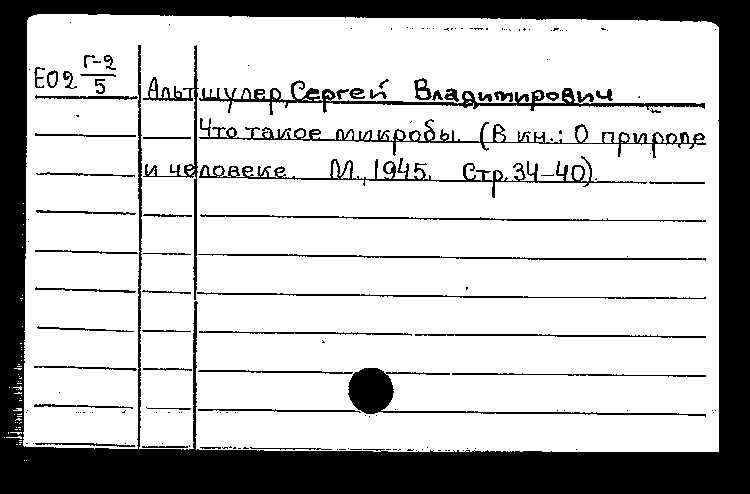 Е02 Г-2/5
Альтшулер, Сергей Владимирович
Что такое микробы. (В кн.: О природе
и человеке. М., 1945. Стр. 34-40).